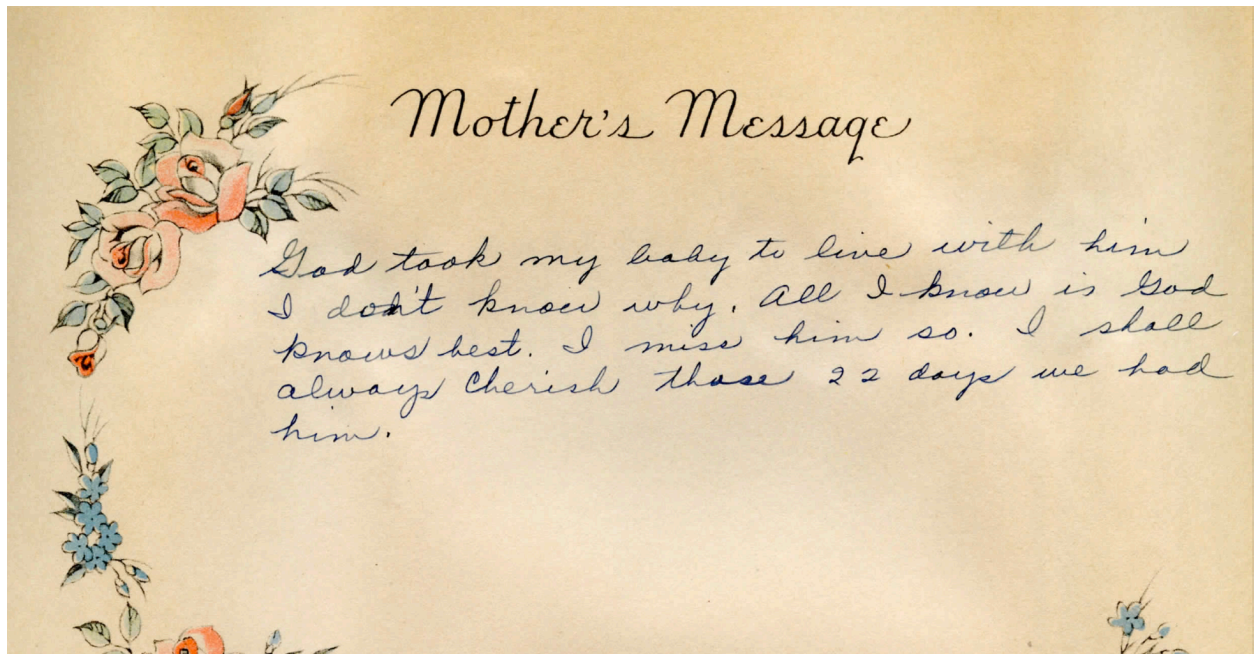 Mother's Message
God took my baby to live with him
I don't know why. All I know is God
knows best. I miss him so. I shall
always cherish those 22 days we had
him.